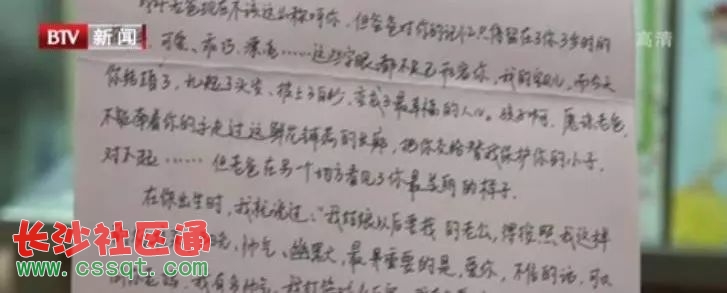 BTV 新闻
高清
爸现在不该这么称呼你，但爸爸对你的记忆只停留在了你3岁时的
可爱、乖巧、漂亮……这些字眼都不足已形容你，我的宝贝，而今天
你结婚了，扎起了头发、披上了白纱，变成了最幸福的人儿。孩子啊，原谅老爸，
不能牵着你的手走过这鲜花铺满的长廊，把你交给替我保护你的小子，
对不起……但老爸在另一个地方看见了你最美丽的样子。
在你出生时，我就说过："我姑娘以后要找的老公，得按照我这样
帅气，幽默，最最重要的是，爱你，不信的话，可以
我有多帅气，我打
长沙社区通
www.cssqt.com